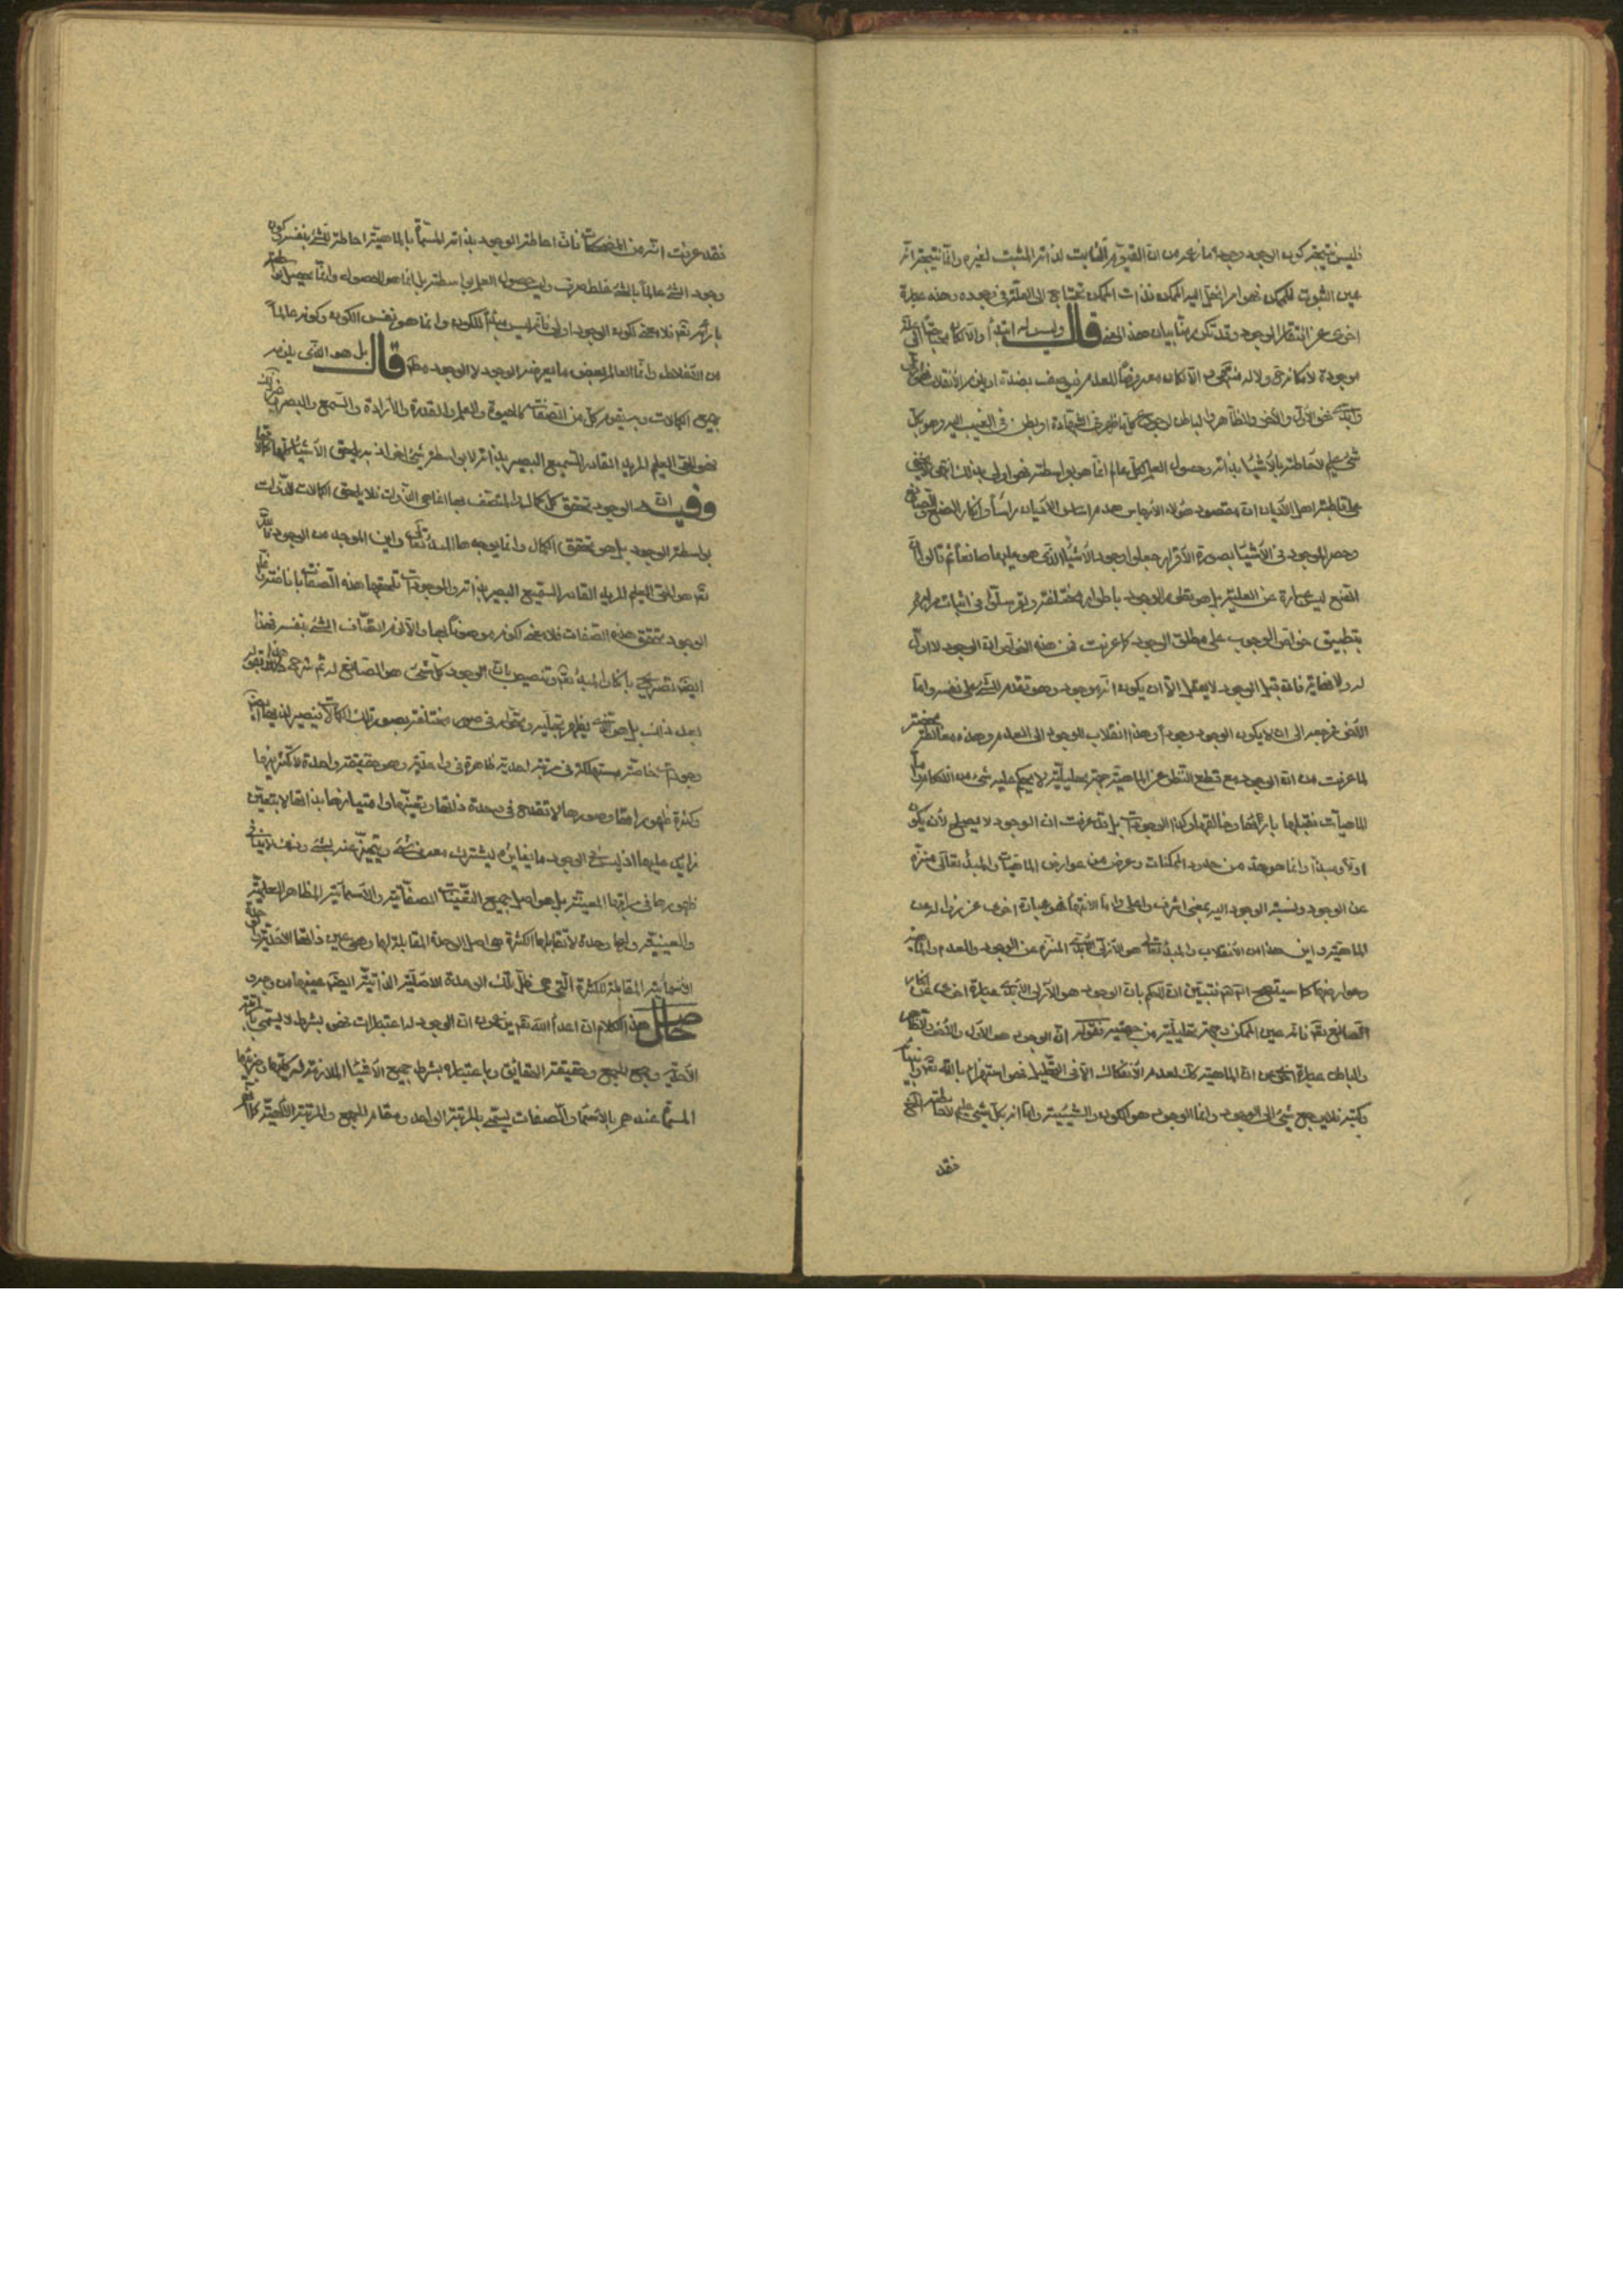 فليس نتيجة كون الوجود وجودا ما زعمه من ان القيوم الثابت لذاته المثبت لغيره وانما نتيجته انه
عين الثبوت للممكن فهو امر انحل اليه الممكن فذات الممكن تحتاج الى العلة في وجوده وهذه عبارة
اخرى عن افتقار الوجود وقد تكرر منا بيان هذا المعنى قال وليس له ابتداء والا لكان محتاجا الى علة
موجودة لامكانه ولا له منتهى والا لكان معروضا للعدم فيوصف بضده او يلزم الانقلاب فهو ازلي
وابدي فهو الاول والاخر والظاهر والباطن لرجوع كل ما ظهر في الشهادة او بطن في الغيب اليه وهو بكل
شيء عليم لاحاطته بالاشياء بذاته وحصول العلم لكل عالم انما هو بواسطته فهو اولى بذلك انتهى لا يخفى
على قاطبة اهل الاديان ان مقصود هؤلاء الارجاس هدم اساس الاديان رأسا وانكار الصنع والصانع
وحصر الموجود في الاشياء بصورة الاقرار جعلوا وجود الاشياء الذي هو عليها صانعا ثم قالوا ان
الصنع ليس عبارة عن العلية بل هو تطور الوجود باطوار مختلفة وتوسلوا في اثبات مرامهم
بتطبيق خواص الوجوب على مطلق الوجود كما عرفت فمن هذه الخواص ان الوجود لا اول
له ولا نهاية فانه قبل الوجود لا يعقل الا ان يكون انه موجود وهو تقدم الشيء على نفسه واما
الاخر فرجعه الى ان لا يكون الوجود وجودا وهذا انقلاب الوجود الى العدم وهذه مغالطة محضة
لما عرفت من ان الوجود مع قطع النظر عن الماهية جهة تحليلية لا يحكم عليه شيء من الاحكام واما
الماهيات فقبلها بارئها وخالقها وكذا الوجودات بل قد عرفت ان الوجود لا يصلح لان يكون
اولا ومبدأ وانما هو حد من حدود الممكنات وعرض من عوارض الماهيات والمبدأ تعالى منزه
عن الوجود ونسبة الوجود اليه بمعنى اشرف واعلى واما الانتهاء فهو عبارة اخرى عن زواله عن
الماهية واين هذا من الانقلاب والمبدأ تعالى هو الازلي الابدي المنزه عن الوجود والعدم والماهية
وعوارضها كما سيتضح انشاء الله فتبين ان الحكم بان الوجود هو الازلي الابدي عبارة اخرى عن انكار
الصانع تعالى فانه عين الممكن وجهة تحليلية من جهتيه فقوله ان الوجود هو الاول والاخر والظاهر
والباطن عبارة اخرى من ان الماهية كذلك لعدم الانفكاك الا في التحليل فهو استهزاء بالله تعالى وانبيائه
وكتبه فلا يرجع شيء الى الوجود وانما الوجود هو الكون والشيئية واما انه بكل شيء عليم لاحاطته الخ
فقد
فقد عرفت انه من المضحكات فان احاطة الوجود بذاته المسماة بالماهية احاطة الشيء بنفسه وكون
وجود الشيء عالما بالشيء غلط صرف وليس حصول العلم بواسطته بل انما هو الحصول وانما يحصل بواسطة
بارئه تعالى فلا معنى لكون الوجود اولى فانه ليس مبدأ للكون وانما هو نفس الكون وكونه عالما
من الاغلاط وانما العالم بعض ما يعرضه الوجود لا الوجود مطلقا قال بل هو الذي يلزمه
جميع الكمالات وبه يقوم كل من الصفات كالحيوة والعلم والقدرة والارادة والسمع والبصر وغير ذلك
فهو الحي العليم المريد القادر السميع البصير بذاته لا بواسطة شيء اخر اذ به يلحق الاشياء كلها كمالاتها
وفيه ان الوجود تحقق كل كمال والمتصف بها انما هي الذوات فلا يلحق الكمالات الذوات
بواسطة الوجود بل هو تحقق الكمال وانما يوجدها المبدأ تعالى واين الموجد من الوجود فالله
تعالى هو الحي العليم المريد القادر السميع البصير بذاته والموجودات تلحقها هذه الصفات بافاضته
الوجود تحقق هذه الصفات فلا معنى لكونه موصوفا بها والا لزم اتصاف الشيء بنفسه فهذا
ايضا تصريح بانكار المبدأ تعالى وتنصيص بان الوجود كل شيء هو الصانع له ثم شرح هذا بقوله
بعد ذلك بل هو الذي يظهر بتجليه وتحوله في صور مختلفة بصور تلك الكمالات فيصير تابعا
وجودات خاصة مستهلكة في مرتبة احديته ظاهرة في واحديته وهو حقيقة واحدة لا تكثر فيها
وكثرة ظهوراتها وصورها لا تقدح في وحدة ذاتها وتعينها وامتيازها بذاتها لا بتعين
زايد عليها اذ ليس في الوجود ما يغايره ليشترك معه في شيء ويتميز عنه بشيء وذلك لا ينافي
ظهورها في مراتبها المعينة بل هو اصل جميع التعينات الصفاتية والاسمائية والمظاهر العلمية
والعينية ولها وحدة لا تقابلها الكثرة هي اصل الوحدة المقابلة لها وهي عين ذاتها الاحدية والوحدة
الاسمائية المقابلة للكثرة التي هي ظل تلك الوحدة الاصلية الذاتية ايضا عينها من وجه
حاصل هذا الكلام ان اعداء الله تعالى يزعمون ان الوجود له اعتبارات فهو بشرط لا يسمى بالمرتبة
الاحدية وجمع الجمع وحقيقة الحقائق وباعتباره بشرط جميع الاشياء اللازمة له كليها وجزئيها
المسماة عندهم بالاسماء والصفات يسمى بالمرتبة الواحدية ومقام الجمع والمرتبة الالهية